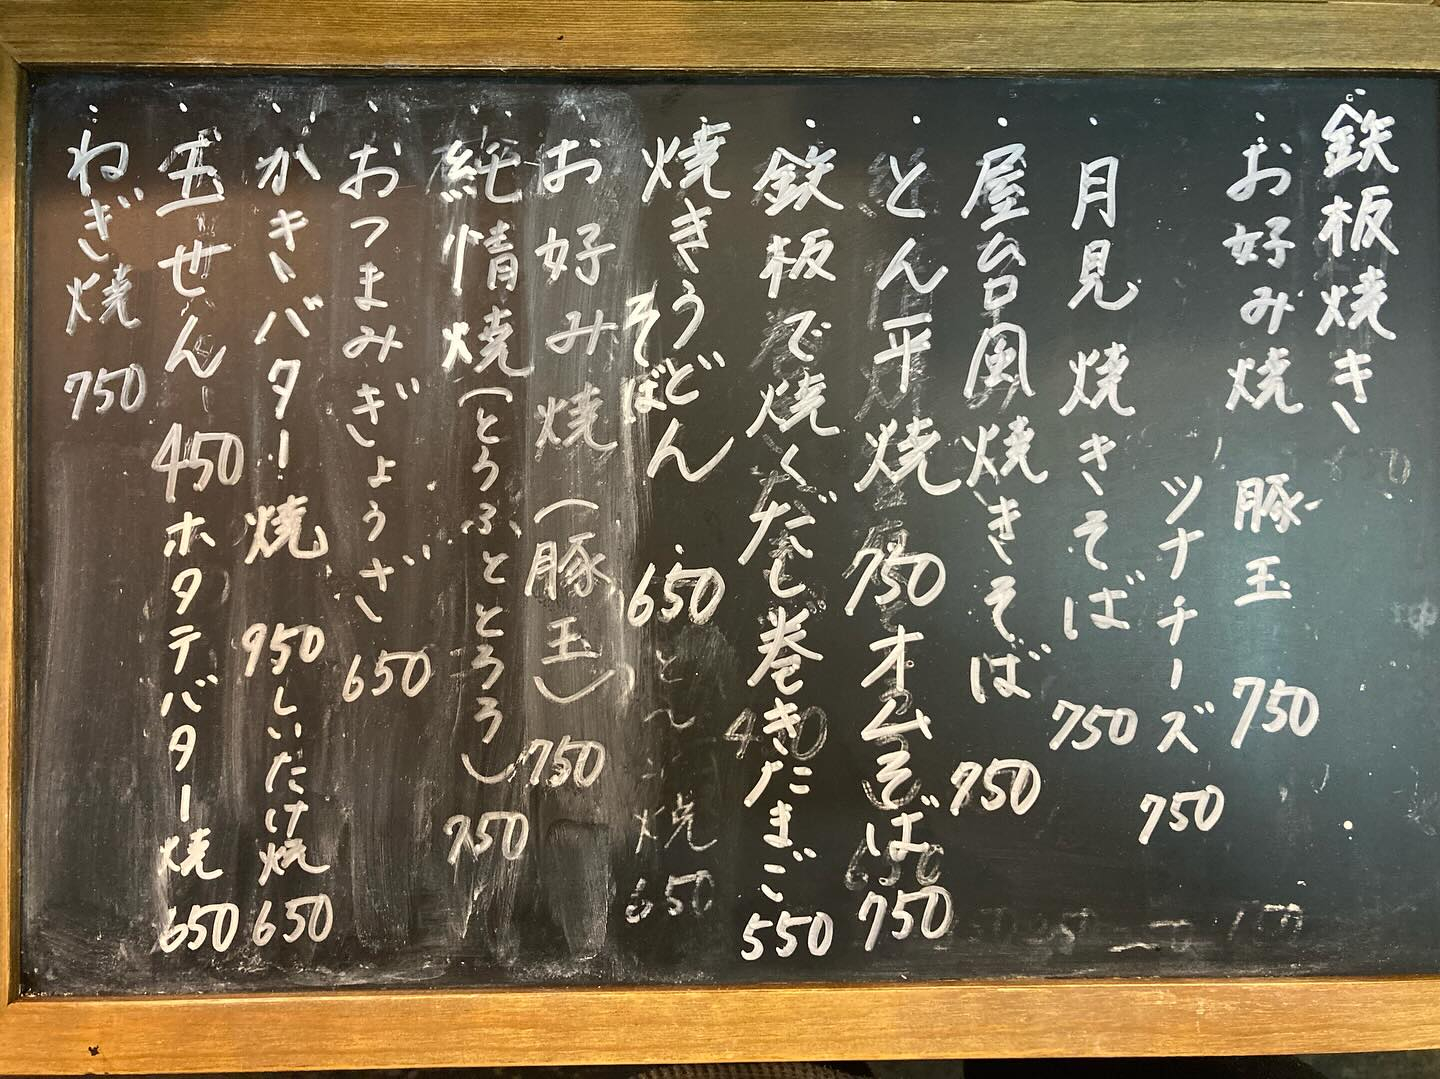 鉄板焼き
・お好み焼 豚玉 750
ツナチーズ 750
・月見焼きそば 750
・屋台風焼きそば 750
・とん平焼 750 オムそば 750
・鉄板で焼くだし巻きたまご 550
焼きうどん 650
そば
・お好み焼(豚玉) 750
・純情焼(とうふととろろ) 750
・おつまみぎょうざ 650
・かきバター焼 950 しいたけ焼 650
・玉せん 450 ホタテバター焼 650
・ねぎ焼 750